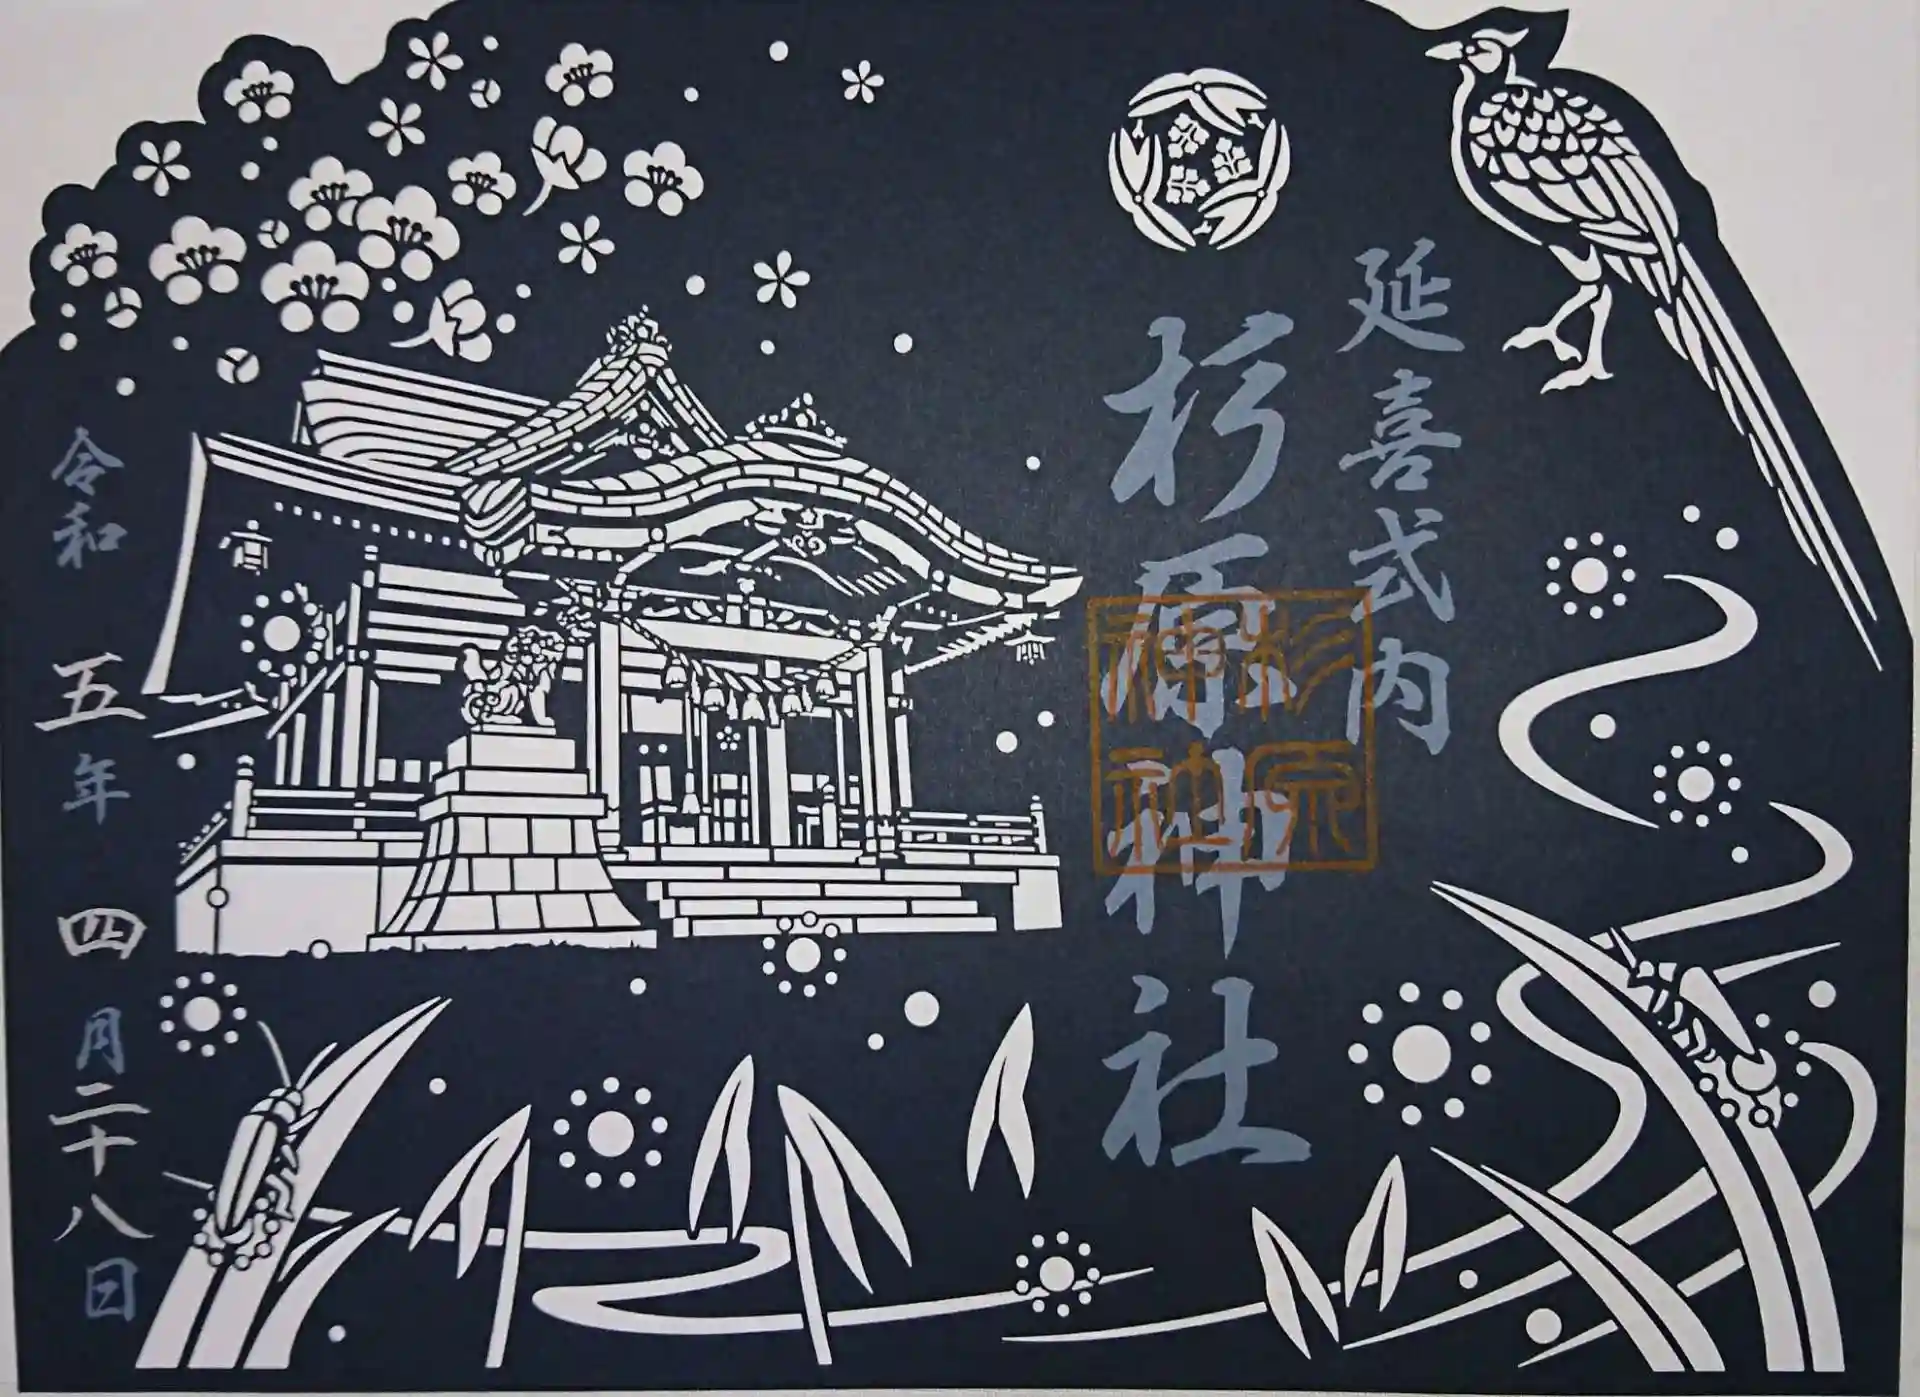 延喜式内
杉原神社
杉原
神社
令和五年四月二十八日